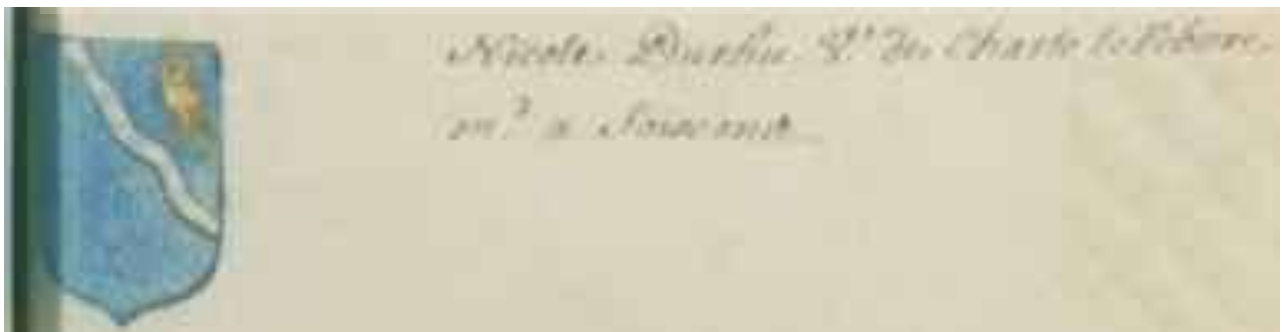 Nicole Durlin V.e de Charle le Febvre
m.d a Soissons